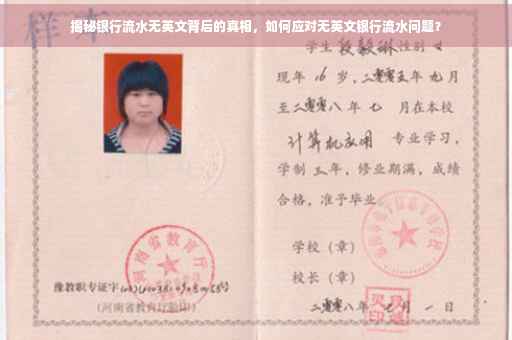 揭秘银行流水无英文背后的真相，如何应对无英文银行流水问题？
样本
学生段毅琳性别女
现年16岁，二零零五年九月
至二零零八年七月在本校
计算机应用 专业学习，
学制三年，修业期满，成绩
合格，准予毕业
学校（章）
校长（章）
二零零八年七月一日
河南省教育厅
豫教职专证字
（河南省教育厅验印）